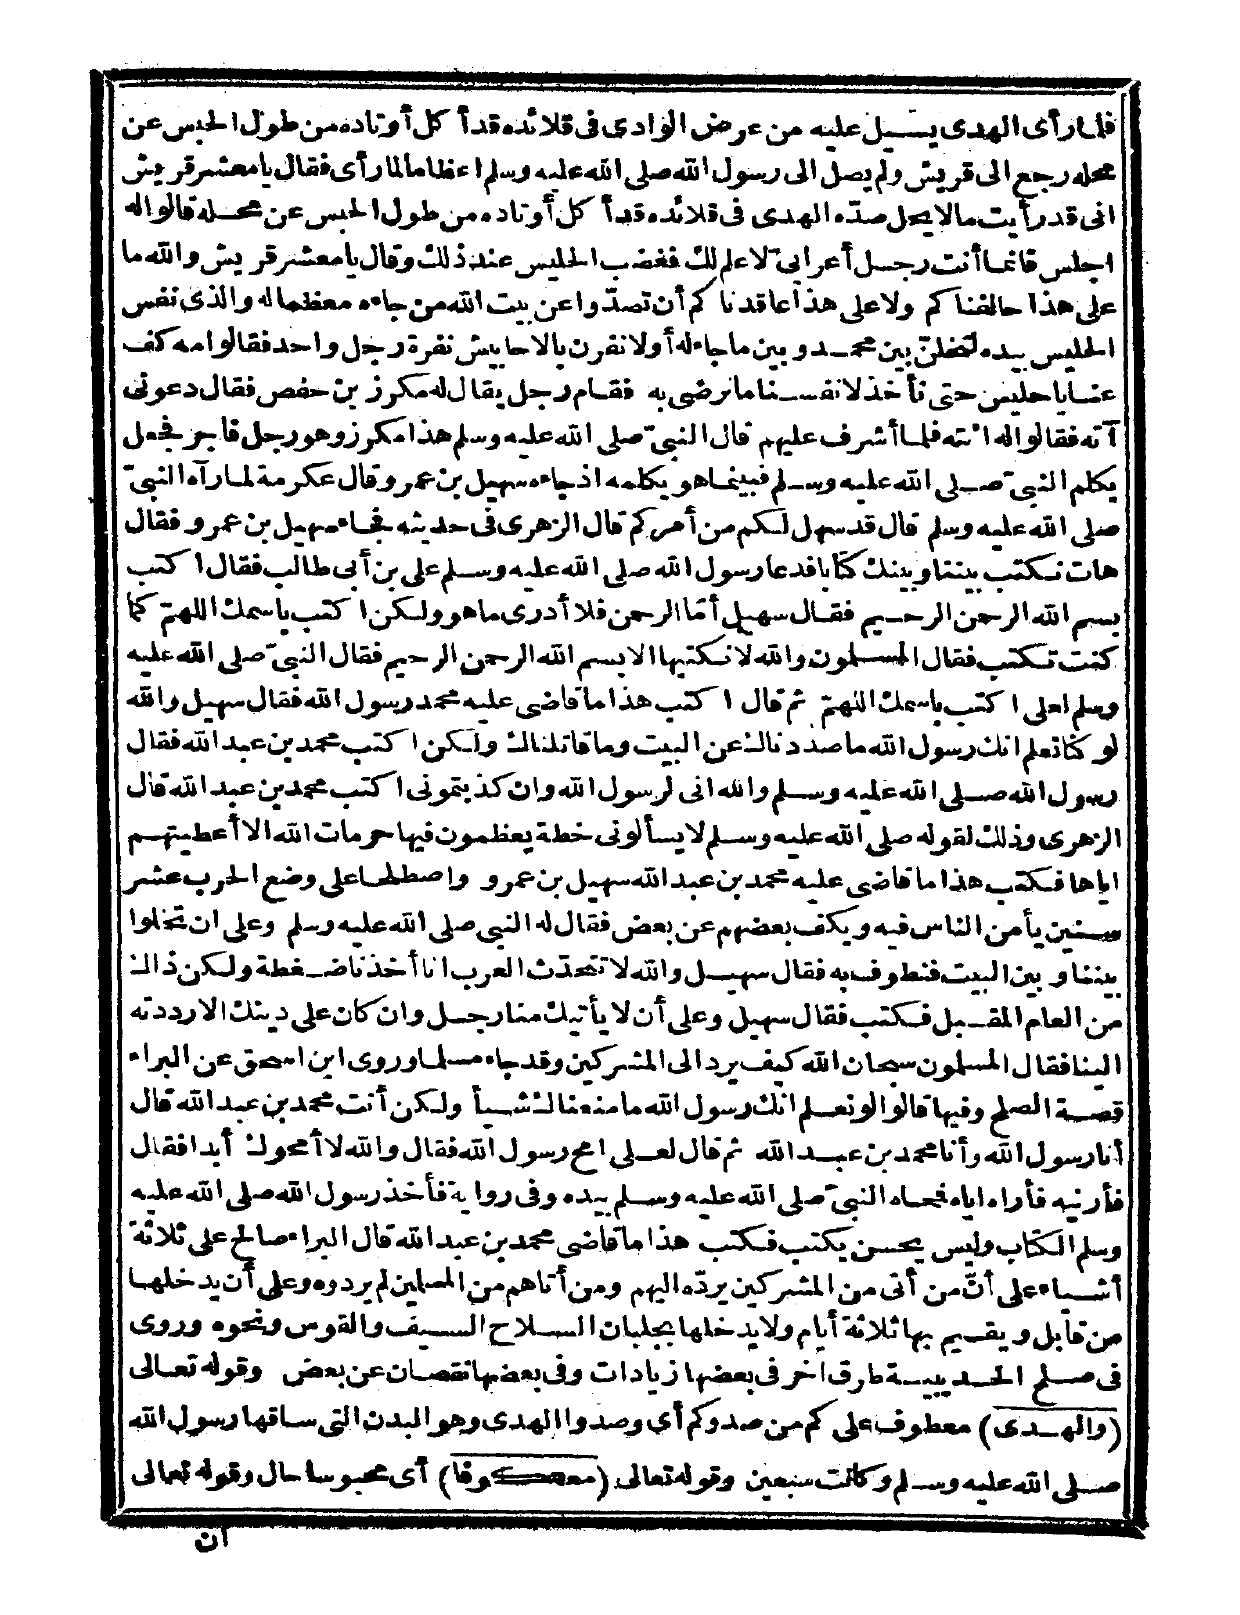 فلما رأى الهدى يسيل عليه من عرض الوادى فى قلائده قد أكل أوتاده من طول الحبس عن
محله رجع الى قريش ولم يصل الى رسول الله صلى الله عليه وسلم اعظاما لما رأى فقال يا معشر قريش
انى قد رأيت ما لا يحل صدّه الهدى فى قلائده قد أكل أوتاده من طول الحبس عن محله قالوا له
اجلس فانما أنت رجل أعرابىّ لا علم لك فغضب الحليس عند ذلك وقال يا معشر قريش والله ما
على هذا حالفناكم ولا على هذا عاقدناكم أن تصدّوا عن بيت الله من جاءه معظما له والذى نفس
الحليس بيده لتخلنّ بين محمد وبين ما جاء له أولا نفرن بالاحابيش نفرة رجل واحد فقالوا مه كف
عنا يا حليس حتى نأخذ لانفسنا ما نرضى به فقام رجل يقال له مكرز بن حفص فقال دعونى
آته فقالوا له ائته فلما أشرف عليهم قال النبىّ صلى الله عليه وسلم هذا مكرز وهو رجل فاجر فجعل
يكلم النبىّ صلى الله عليه وسلم فبينما هو يكلمه اذ جاءه سهيل بن عمرو وقال عكرمة لما رآه النبىّ
صلى الله عليه وسلم قال قد سهل لكم من أمركم قال الزهرى فى حديثه فجاء سهيل بن عمرو فقال
هات نكتب بيننا وبينك كتابا فدعا رسول الله صلى الله عليه وسلم على بن أبى طالب فقال اكتب
بسم الله الرحمن الرحيم فقال سهيل أمّا الرحمن فلا أدرى ما هو ولكن اكتب باسمك اللهمّ كما
كنت تكتب فقال المسلمون والله لا نكتبها الا بسم الله الرحمن الرحيم فقال النبىّ صلى الله عليه
وسلم لعلى اكتب باسمك اللهمّ ثم قال اكتب هذا ما قاضى عليه محمد رسول الله فقال سهيل والله
لو كنا نعلم انك رسول الله ما صددناك عن البيت وما قاتلناك ولكن اكتب محمد بن عبد الله فقال
رسول الله صلى الله عليه وسلم والله انى لرسول الله وان كذبتمونى اكتب محمد بن عبد الله قال
الزهرى وذلك لقوله صلى الله عليه وسلم لا يسألونى خطة يعظمون فيها حرمات الله الا أعطيتهم
اياها فكتب هذا ما قاضى عليه محمد بن عبد الله سهيل بن عمرو واصطلحا على وضع الحرب عشر
سنين يأمن الناس فيه ويكف بعضهم عن بعض فقال له النبى صلى الله عليه وسلم وعلى ان تخلوا
بيننا وبين البيت فنطوف به فقال سهيل والله لا تتحدّث العرب انا أخذنا ضغطة ولكن ذالك
من العام المقبل فكتب فقال سهيل وعلى أن لا يأتيك منا رجل وان كان على دينك الا رددته
الينا فقال المسلمون سبحان الله كيف يرد الى المشركين وقد جاء مسلما وروى ابن اسحق عن البراء
قصة الصلح وفيها قالوا لو نعلم انك رسول الله ما منعناك شيأ ولكن أنت محمد بن عبد الله قال
أنا رسول الله وأنا محمد بن عبد الله ثم قال لعلى امح رسول الله فقال والله لا أمحوك أبدا فقال
فأرنيه فأراه اياه فمحاه النبىّ صلى الله عليه وسلم بيده وفى رواية فأخذ رسول الله صلى الله عليه
وسلم الكتاب وليس يحسن يكتب فكتب هذا ما قاضى محمد بن عبد الله قال البراء صالح على ثلاثة
أشياء على أنّ من أتى من المشركين يردّه اليهم ومن أتاهم من المسلمين لم يردوه وعلى أن يدخلها
من قابل ويقيم بها ثلاثة أيام ولا يدخلها بجلبان السلاح السيف والقوس ونحوه وروى
فى صلح الحديبية طرق اخر فى بعضها زيادات وفى بعضها نقصان عن بعض وقوله تعالى
(والهدى) معطوف على كم من صدوكم أى وصدوا الهدى وهو البدن التى ساقها رسول الله
صلى الله عليه وسلم وكانت سبعين وقوله تعالى (معكوفا) أى محبوسا حال وقوله تعالى
ان